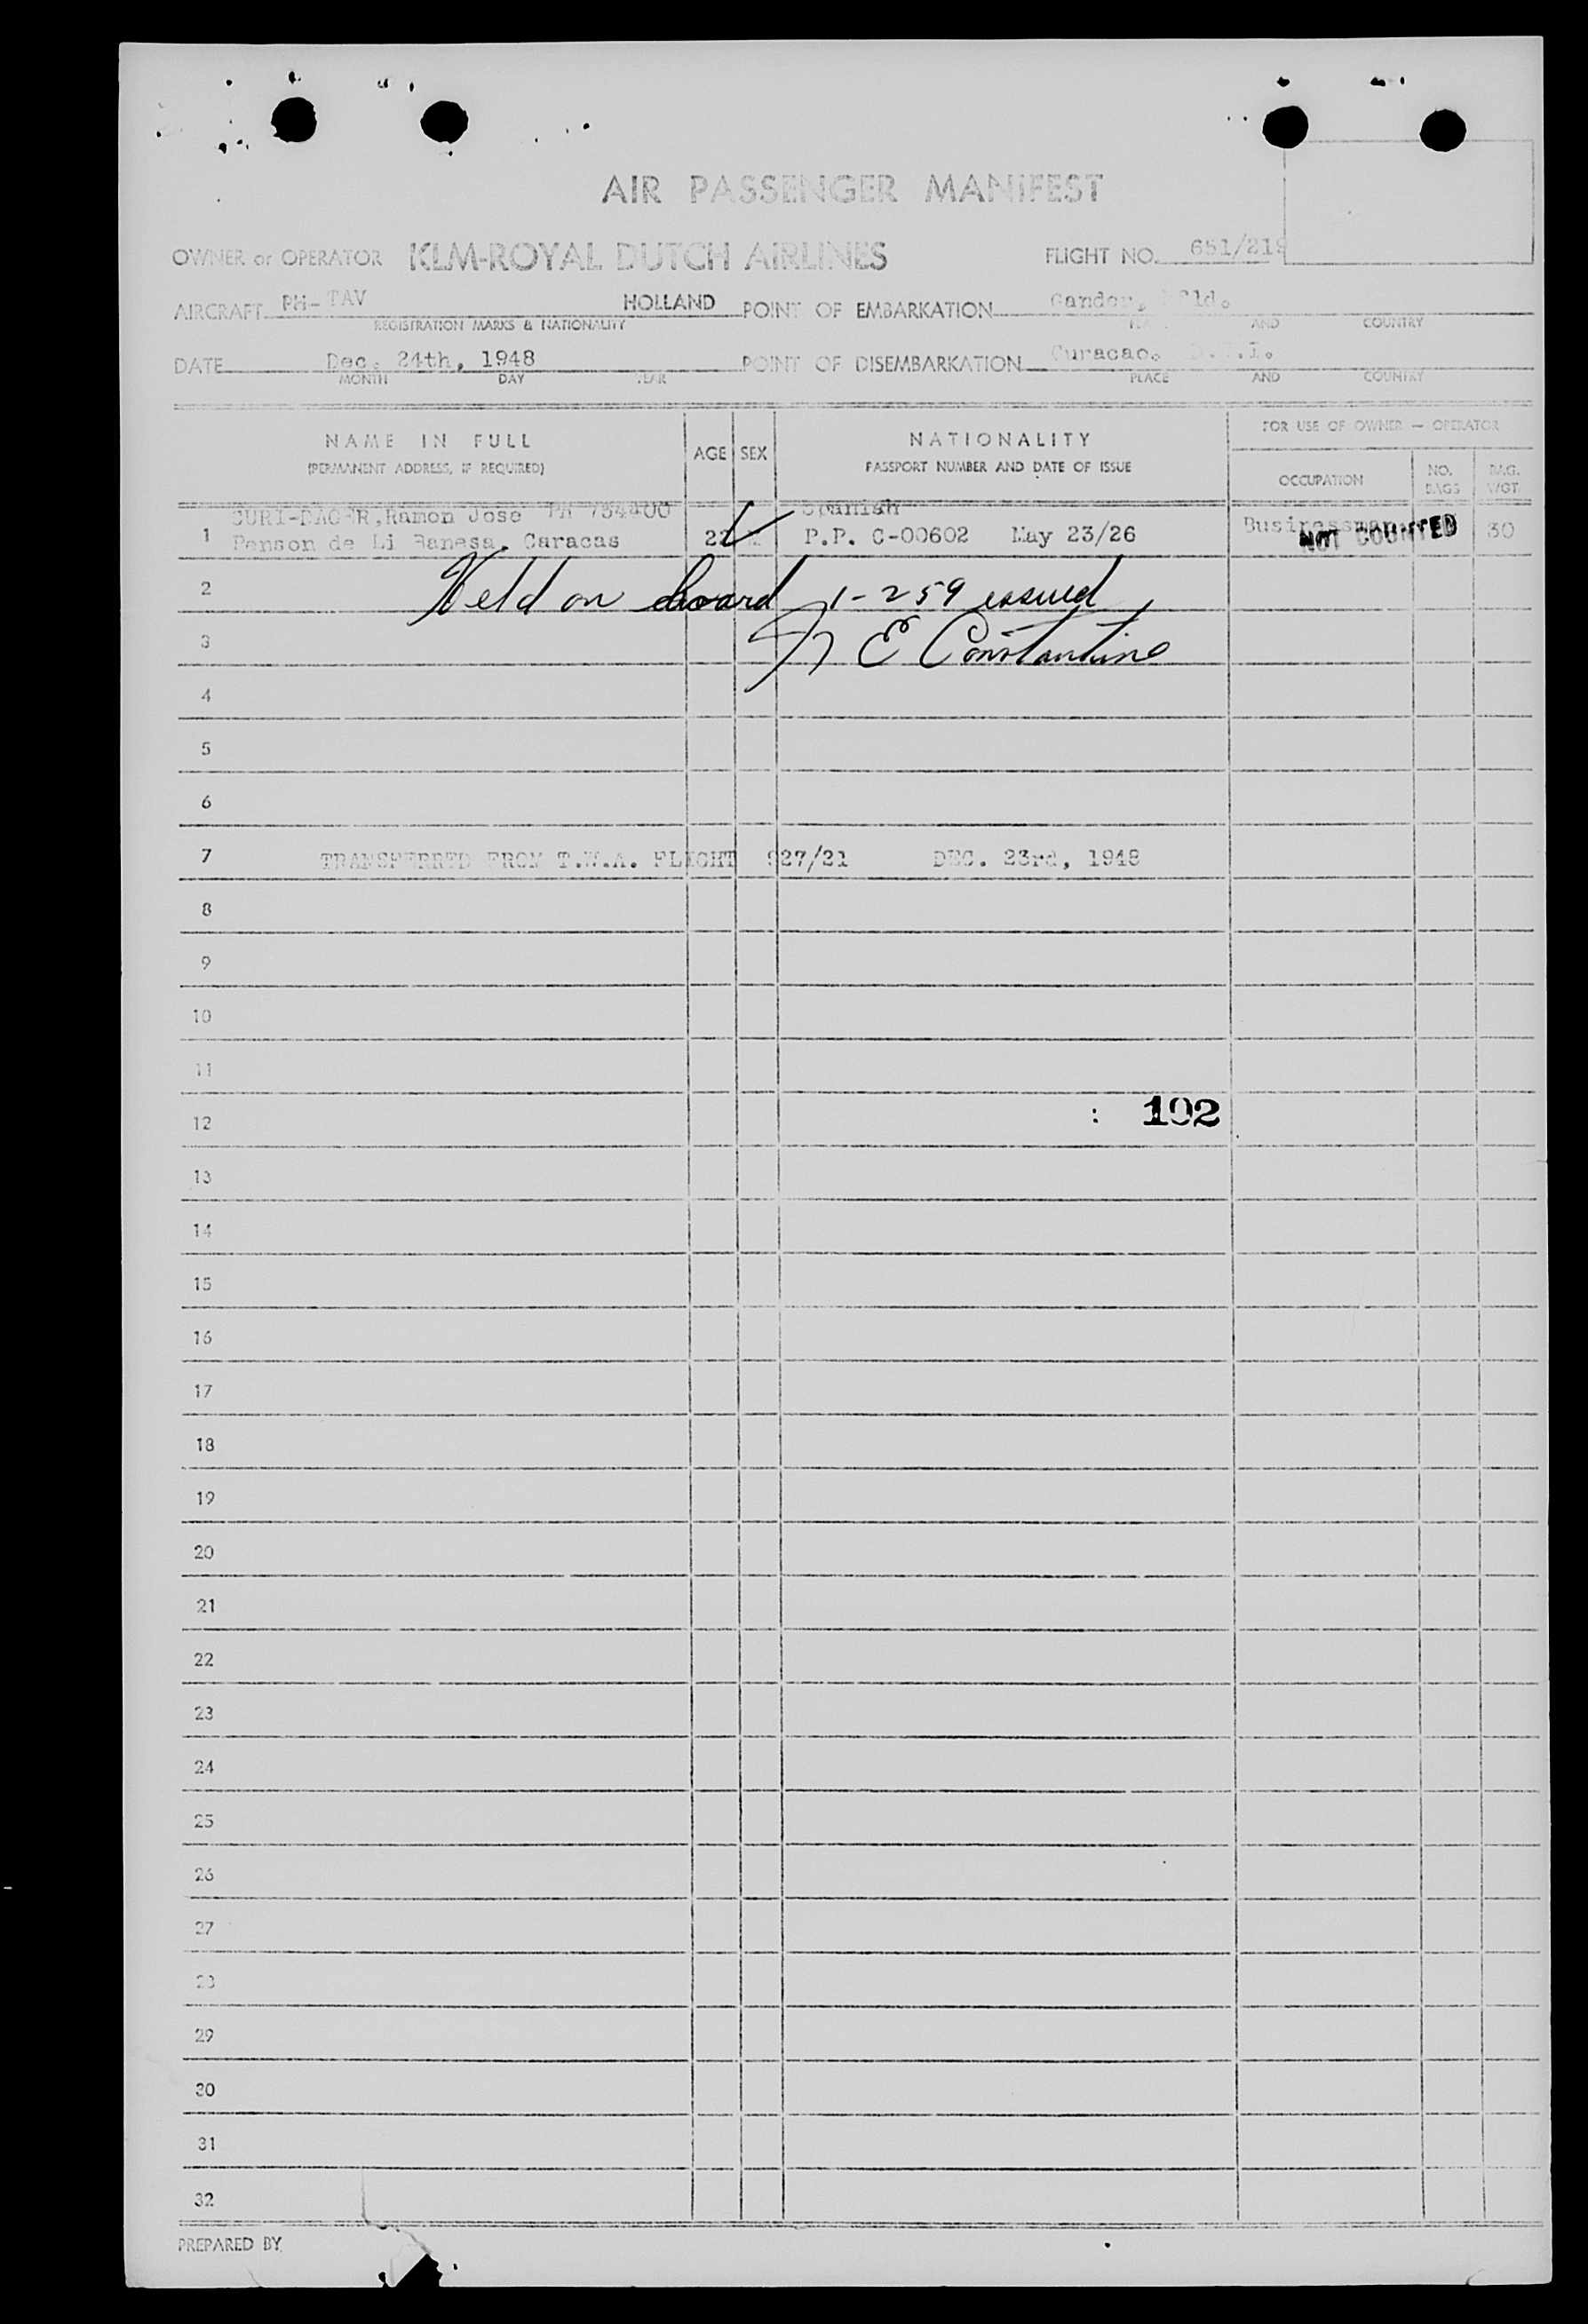 AIR PASSENGER MANIFEST
OWNER or OPERATOR KLM-ROYAL DUTCH AIRLINES FLIGHT NO. 651/219
AIRCRAFT PH-TAV HOLLAND POINT OF EMBARKATION Gander, Nfld.
REGISTRATION MARKS & NATIONALITY AND COUNTRY
DATE Dec. 24th, 1948 POINT OF DISEMBARKATION Curacao.
MONTH DAY YEAR PLACE AND COUNTRY
NAME IN FULL AGE SEX NATIONALITY FOR USE OF OWNER — OPERATOR
(PERMANENT ADDRESS, IF REQUIRED) PASSPORT NUMBER AND DATE OF ISSUE OCCUPATION NO. BAGS BAG. WGT.
Ramon Jose Spanish
1 Penson de Li Banesa. Caracas P.P. C-00602 May 23/26 Businessman NOT COUNTED 30
2 Held on board 1-259 issued
3 E Constantine
4
5
6
7 TRANSFERRED FROM T.W.A. FLIGHT 927/21 DEC. 23rd, 1948
8
9
10
11
12 : 102
13
14
15
16
17
18
19
20
21
22
23
24
25
26
27
28
29
30
31
32
PREPARED BY